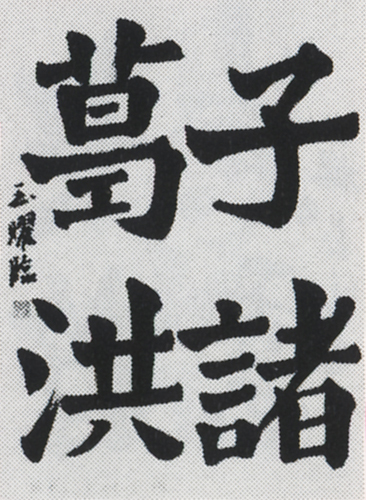 子諸
葛洪
玉耀臨